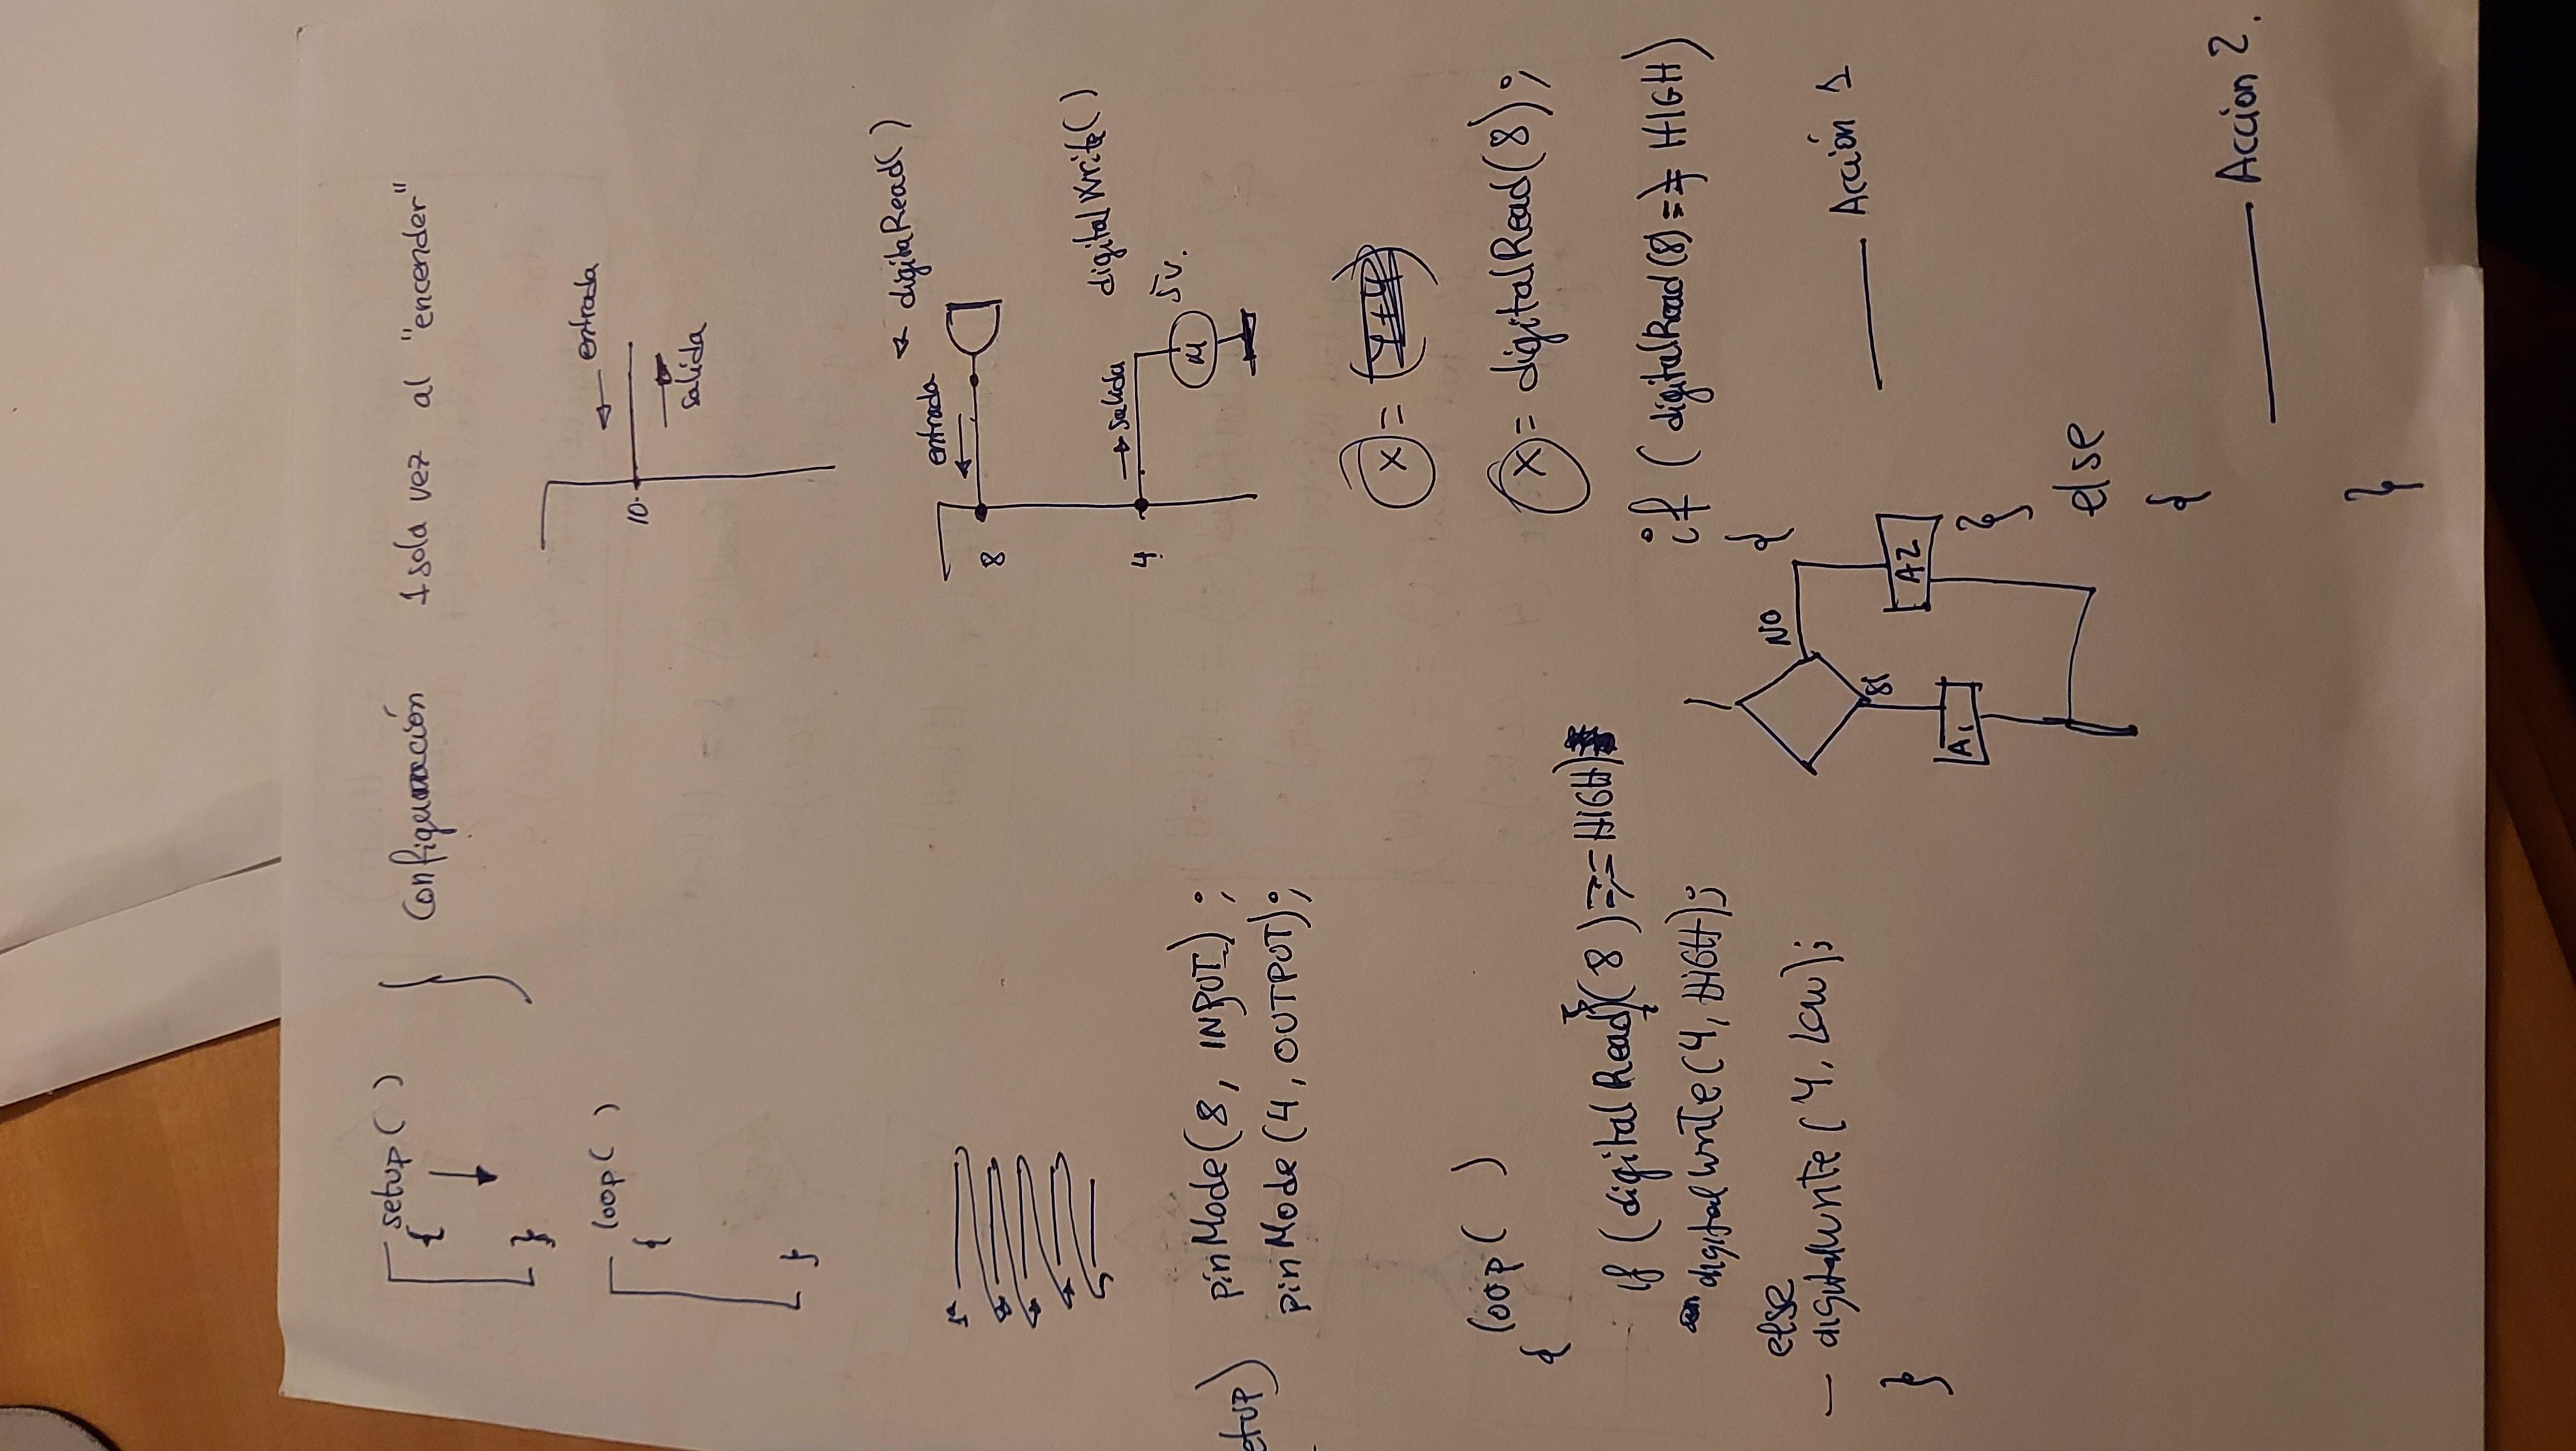 setup( )
{
}
} Configuración 1 sola vez al "encender"
loop( )
{
}
← entrada
10.
→
salida
← digitaRead( )
entrada
←
8
digitalWrite( )
→ salida
4.
M
5v.
pinMode(8, INPUT);
pinMode(4, OUTPUT);
x = (
x = digitalRead(8);
loop( )
{
if (digitalRead(8) == HIGH)
digitalWrite(4, HIGH);
else
— digitalwrite(4, Low);
}
NO
SI
A1
A2
if (digitalRead(8) == HIGH)
{
—— Acción 1
}
else
{
—— Acción 2.
}